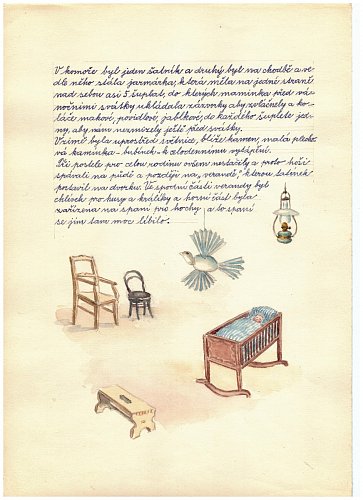 V komoře byl jeden šatník a druhý byl na chodbě a ve-
dle něho stála jarmárka, která měla na jedné straně
nad sebou asi 5 šuplat, do kterých maminka před vá-
nočními svátky ukládala zázvorky aby zvláčněly a ko-
láče makové, povidlové, jablkové, do každého šuplete jed-
ny, aby nám nezmizely ještě před svátky.
V zimě byla uprostřed světnice, blíže kamen, malá plecho-
vá kamínka - bubínek - k celodennímu vytápění.
Tři postele pro celou rodinu ovšem nestačily a proto hoši
spávali na půdě a později na "verandě," kterou tatínek
postavil na dvorku. Ve spodní části verandy byl
chlívek pro husy a králíky a horní část byla
zařízena na spaní pro hochy a to spaní
se jim tam moc líbilo.